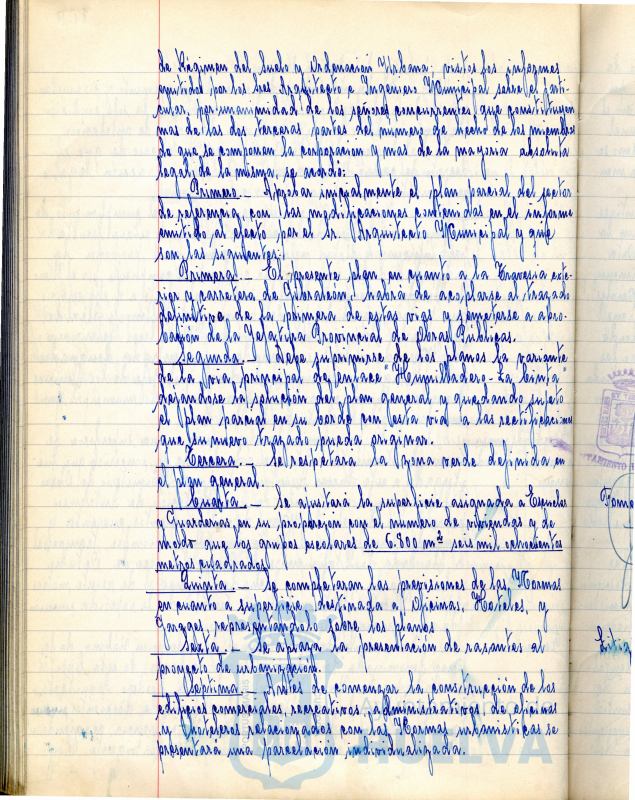 de Régimen del Suelo y Ordenación Urbana; vistos los informes
emitidos por los Sres Arquitecto e Ingeniero Municipal sobre el parti-
cular, por unanimidad de los señores concurrentes, que constituyen
mas de las dos terceras partes del número de hecho de los miembros
de que se componen la corporación y mas de la mayoria absoluta
legal, de la misma, se acordó:
Primero.- Aprobar inicialmente el plan parcial del sector
de referencia, con las modificaciones contenidas en el informe
emitido al efecto por el Sr. Arquitecto Municipal y que
son las siguientes:
Primera.- El presente plan, en cuanto a la Travesia exte-
rior y carretera de Gibraleón, habrá de acoplarse al trazado
definitivo de la primera de estas vias y someterse a apro-
bación de la Jefatura Provincial de Obras Públicas.
Segunda.- Debe suprimirse de los planos la variante
de la via principal de enlace "Humilladero-La Cinta"
dejandose la solución del plan general y quedando sujeto
el plan parcial en su borde con esta via a las rectificaciones
que su nuevo trazado pueda originar.
Tercera.- Se respetará la zona verde definida en
el plan general.
Cuarta.- Se ajustará la superficie asignada a Escuelas
y Guarderias en su proporción con el número de viviendas y de
modo que los grupos escolares de 6.800 m² seis mil ochocientos
metros cuadrados.
Quinta.- Se completaran las previsiones de las Normas
en cuanto a superficie destinada a Oficinas, Hoteles, y
Garages, representandolo sobre los planos
Sexta.- Se aplaza la presentación de rasantes al
proyecto de urbanización.
Septima.- Antes de comenzar la construcción de los
edificios comerciales, recreativos, administrativos, de oficinas
y hoteleros relacionados con las Normas urbanisticas se
presentará una parcelación individualizada.
HUELVA